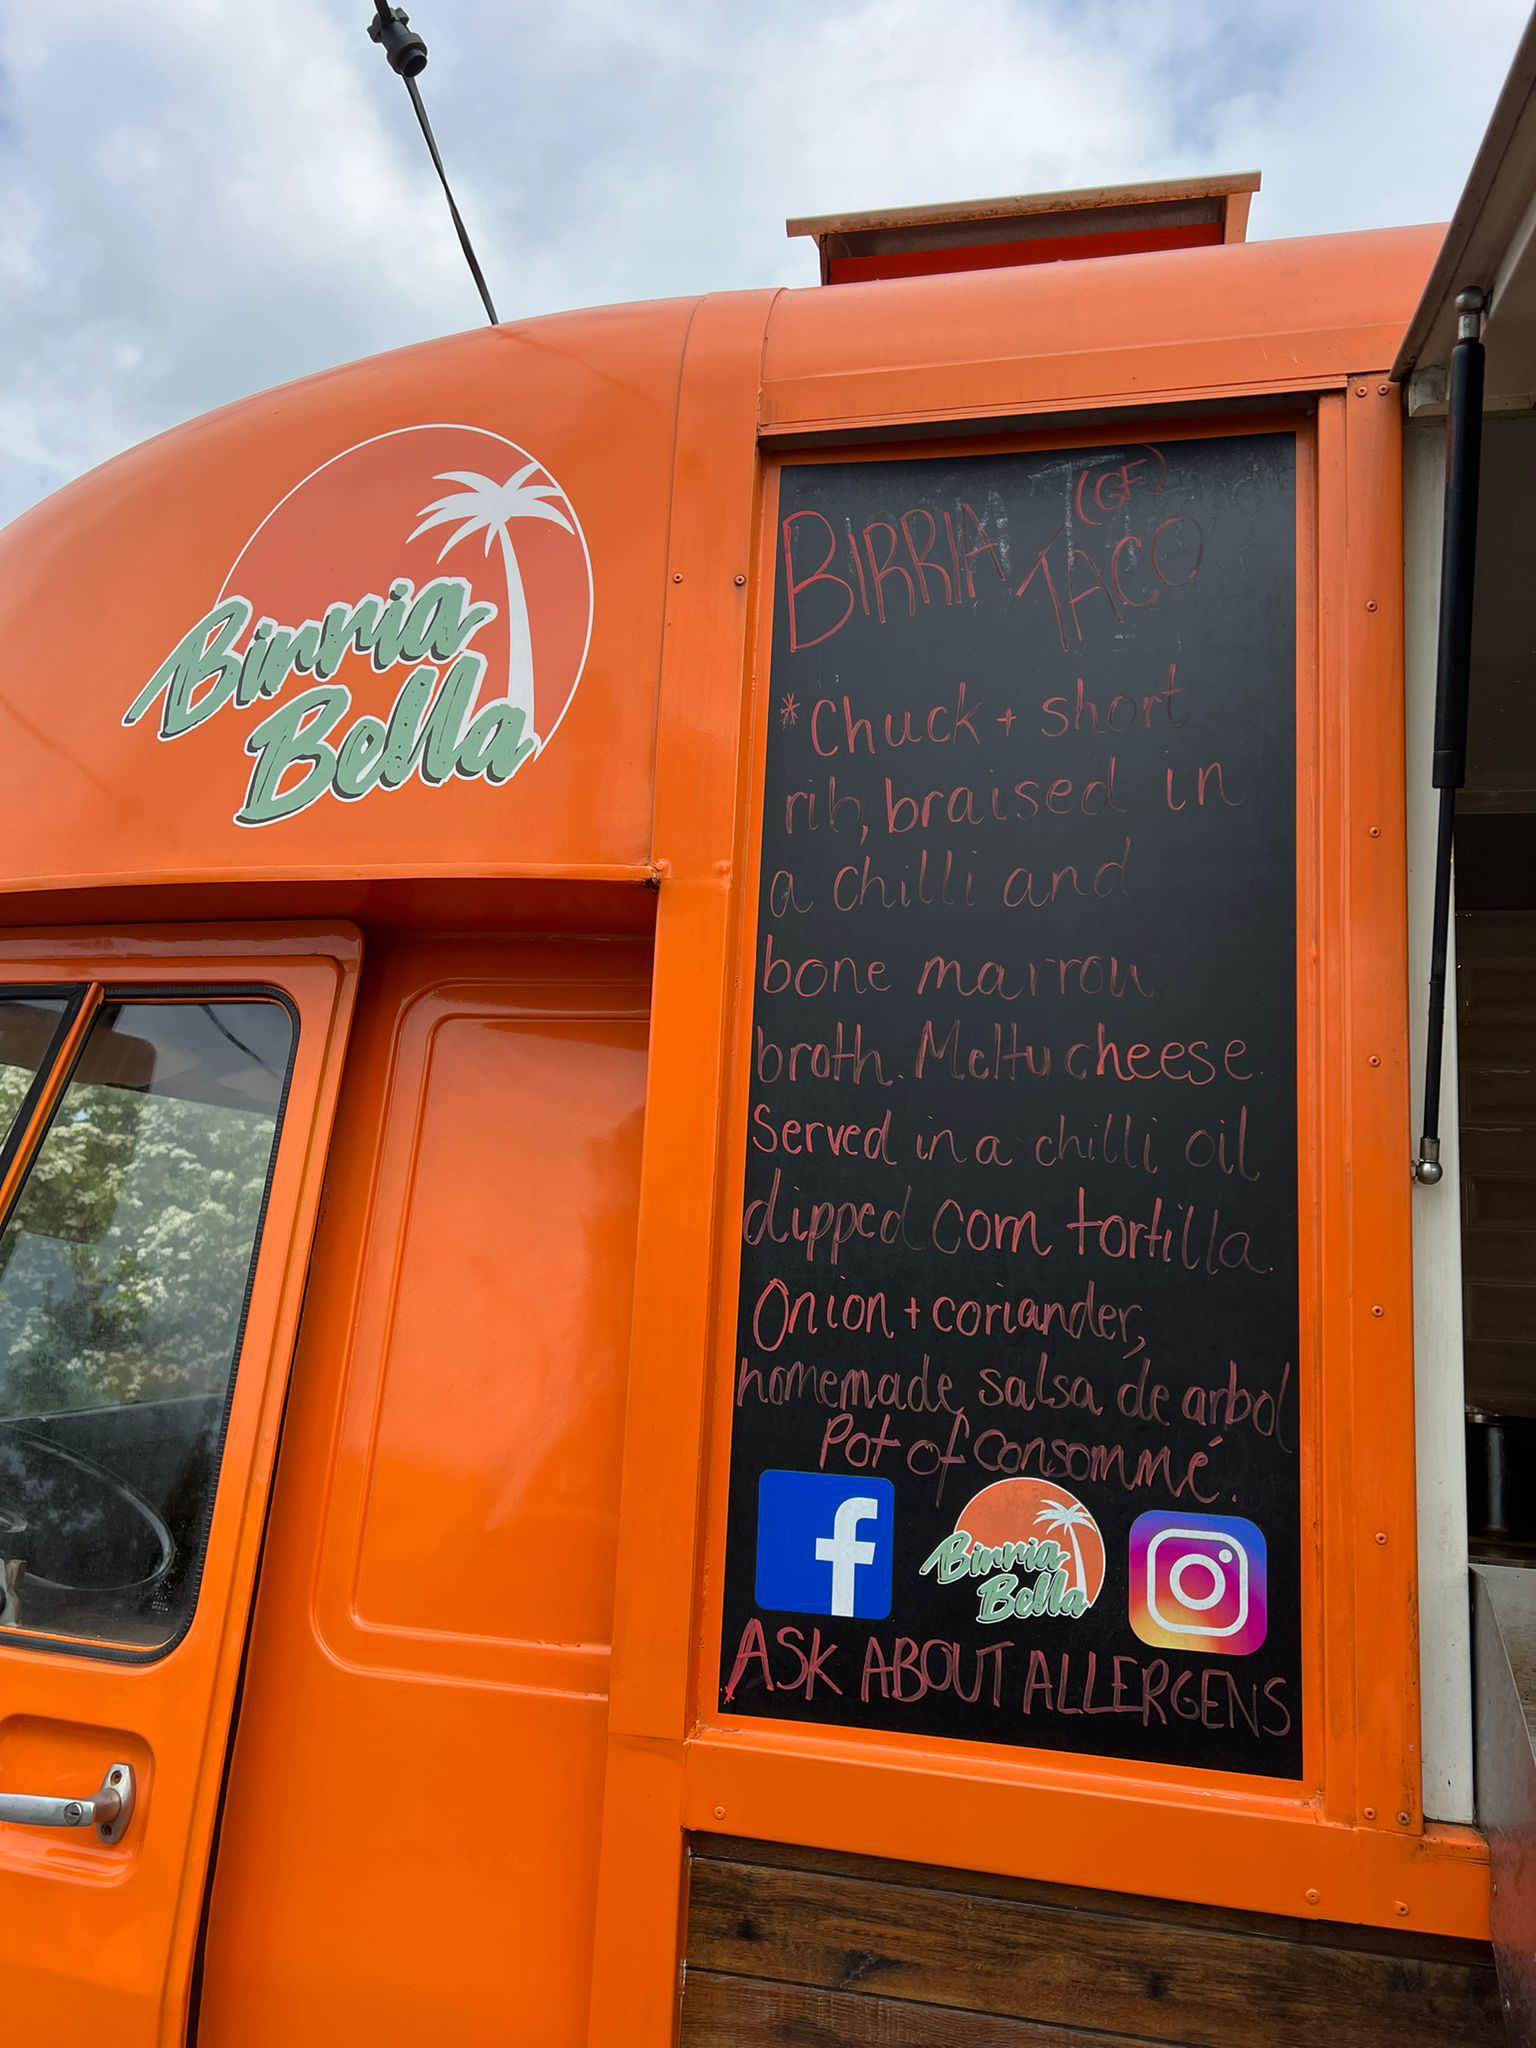 Birria
Bella
(GF)
BIRRIA TACO
*Chuck + short
rib, braised in
a chilli and
bone marrow
broth. Melty cheese.
Served in a chilli oil
dipped corn tortilla.
Onion + coriander,
homemade salsa de arbol
Pot of Consommé.
f
Birria
Bella
ASK ABOUT ALLERGENS